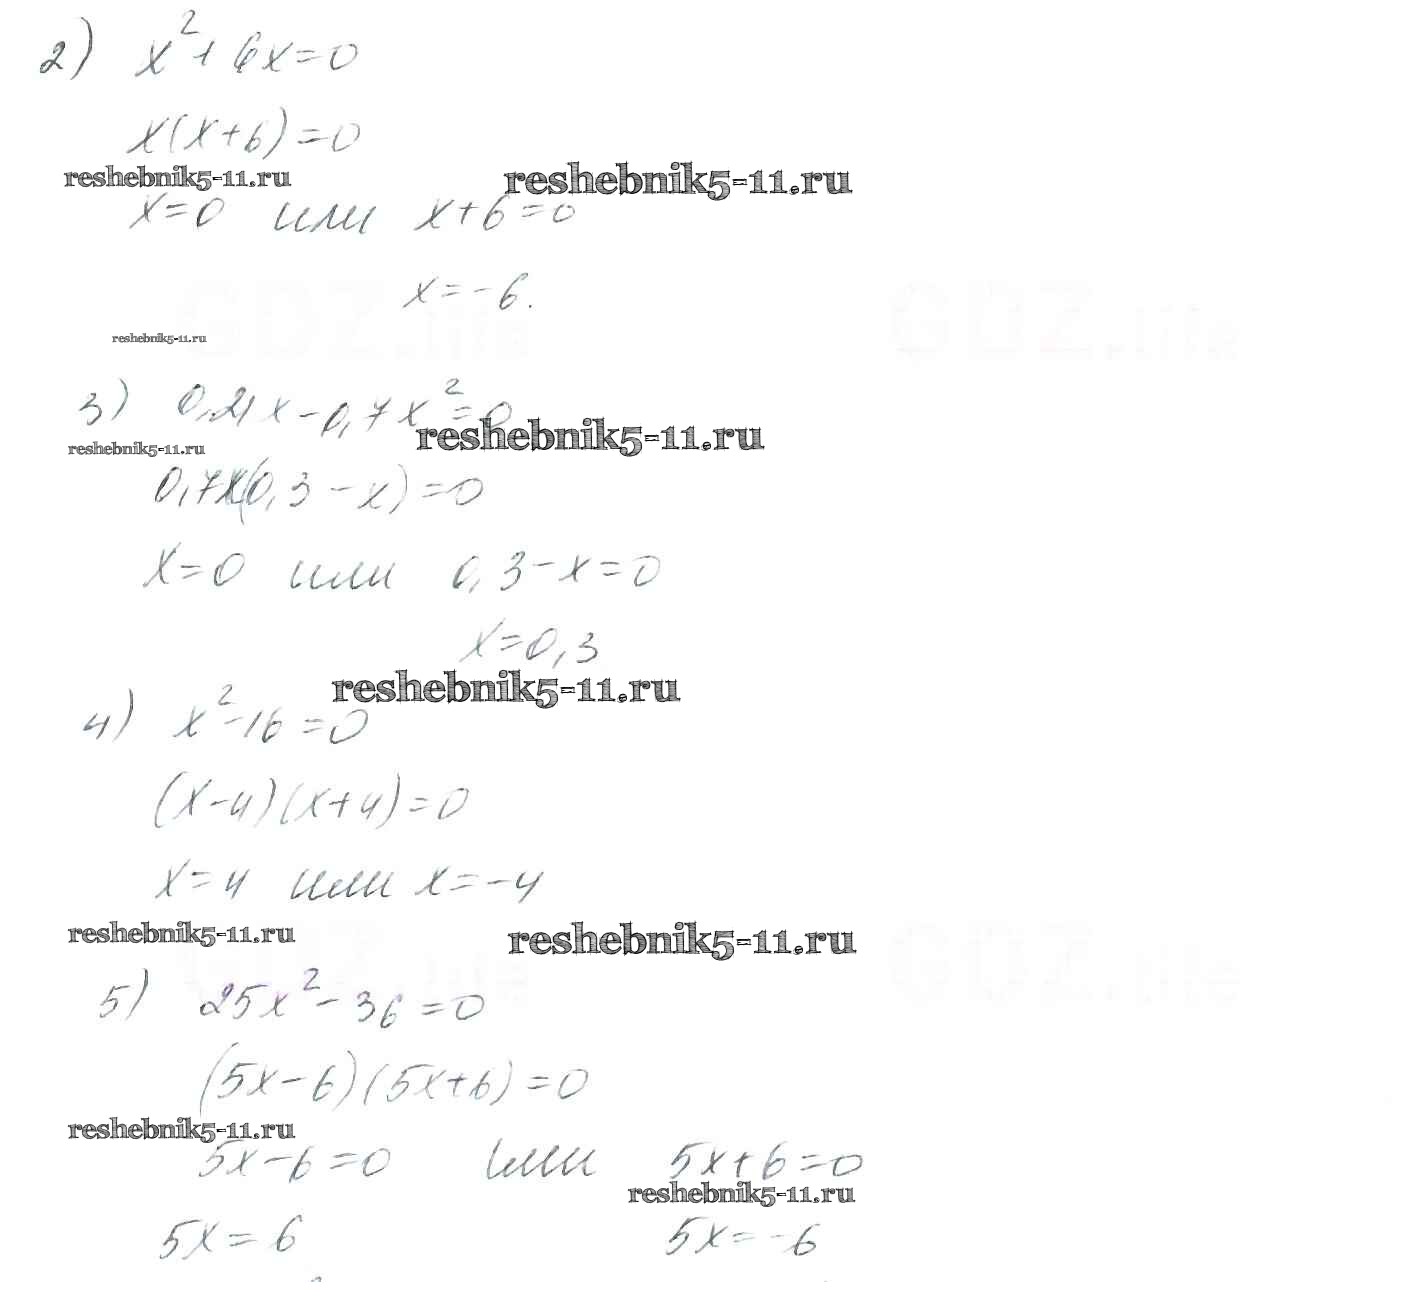 2) x²+6x=0
x(x+6)=0
reshebnik5-11.ru reshebnik5-11.ru
x=0 или x+6=0
x=-6.
GDZ.life GDZ.life
reshebnik5-11.ru
3) 0,21x-0,7x²=0
reshebnik5-11.ru reshebnik5-11.ru
0,7x(0,3-x)=0
x=0 или 0,3-x=0
x=0,3
reshebnik5-11.ru
4) x²-16=0
(x-4)(x+4)=0
x=4 или x=-4
reshebnik5-11.ru reshebnik5-11.ru
GDZ.life GDZ.life
5) 25x²-36=0
(5x-6)(5x+6)=0
reshebnik5-11.ru
5x-6=0 или 5x+6=0
reshebnik5-11.ru
5x=6 5x=-6